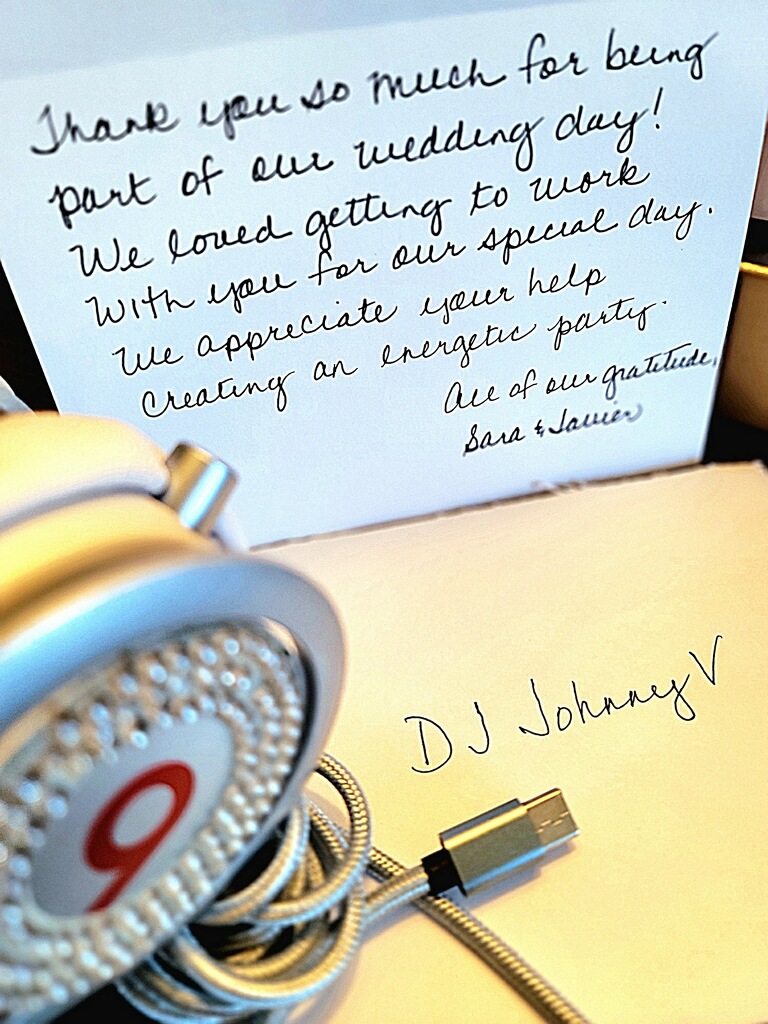 Thank you so much for being
part of our wedding day!
We loved getting to work
with you for our special day.
We appreciate your help
creating an energetic party.
All of our gratitude,
Sara & Javier
DJ Johnney V